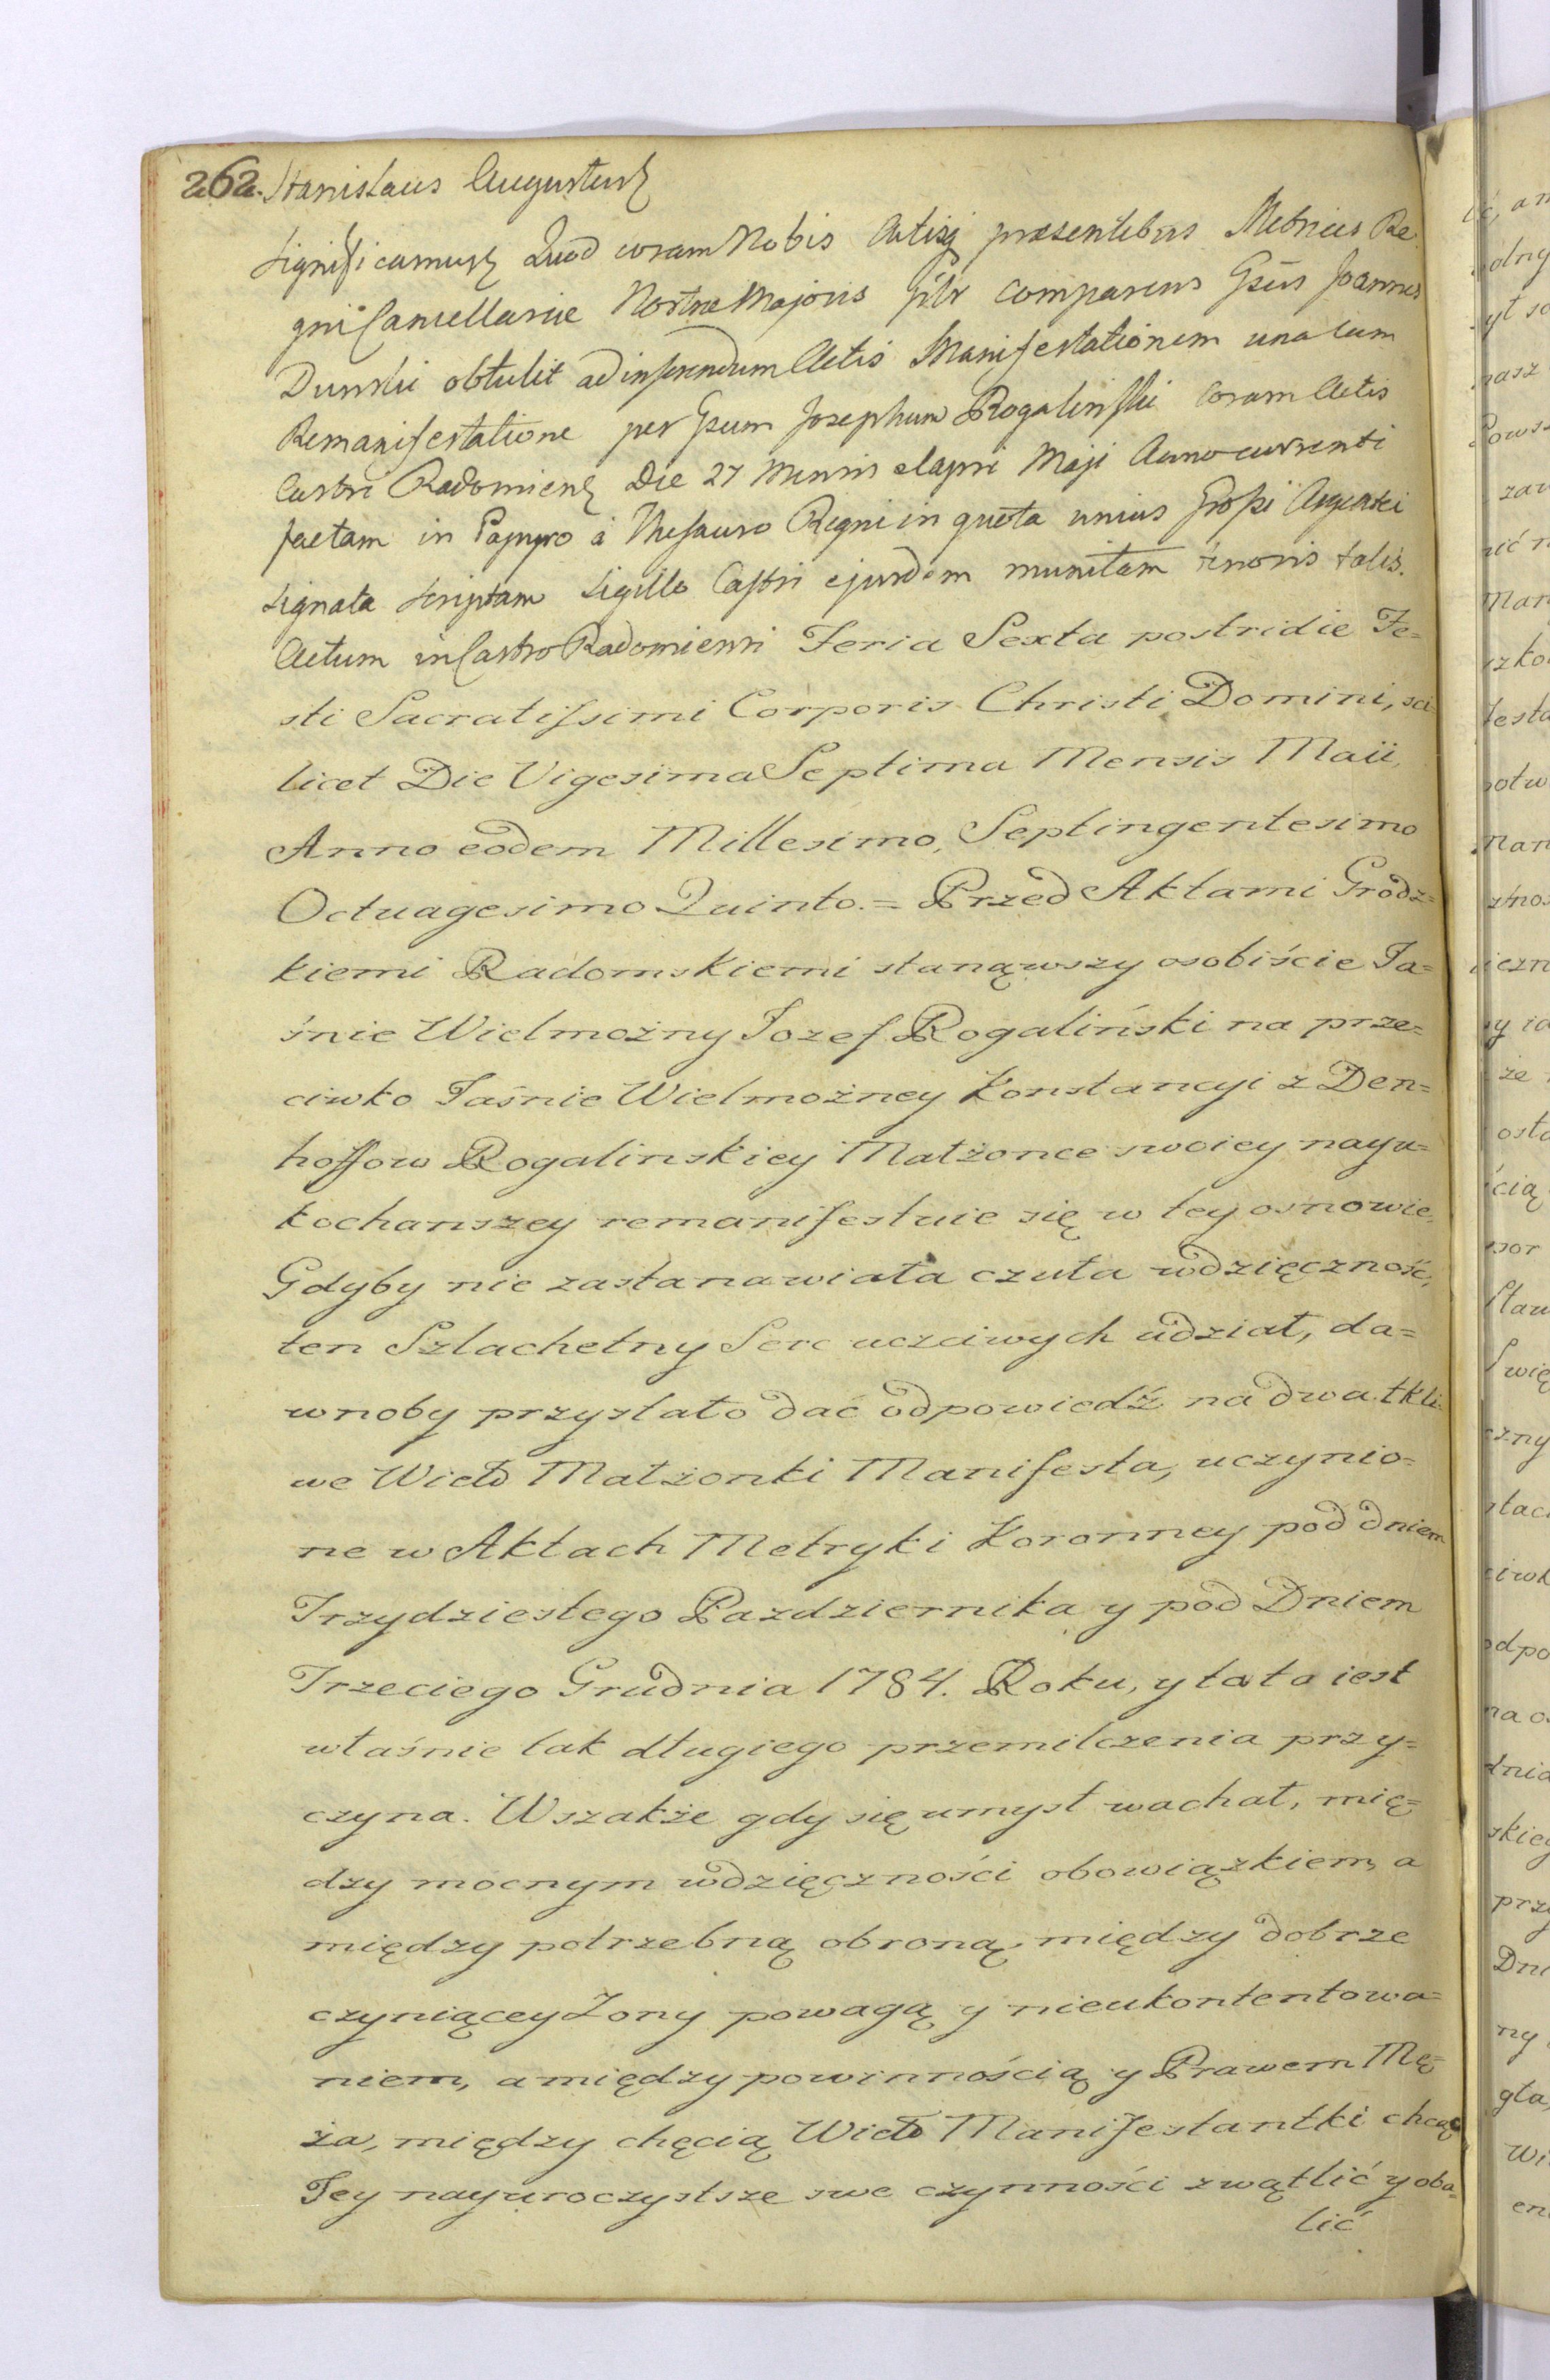 262. Stanislaus Augustus
Significamus Quod coram Nobis Actisq presentibus Metrices Re
gni Cancellariæ Nostræ Majoris pslr comparens Gsus Joannes
Dunski obtulit ad inserendum Actis Manifestationem una cum
Remanifestatione per Gsum Josephum Rogaliński coram Actis
Castri Radomiens Die 27 Mensis elapsi Maji Anno currenti
factam in Papyro à Thesauro Regni in quota unius Grossi Argentei
signata scriptam Sigillo Castri ejusdem munitam tenoris talis.
Actum in Castro Radomiensi Feria Sexta postridie Fe=
sti Sacratissimi Corporis Christi Domini, sci
licet Die Vigesima Septima Mensis Maii,
Anno eodem Millesimo, Septingentesimo
Octuagesimo Quinto. = Przed Aktami Grodz=
kiemi Radomskiemi stanąwszy osobiście Ja=
śnie Wielmożny Jozef Rogaliński na prze=
ciwko Jaśnie Wielmożney Konstancyi z Den=
hoffow Rogalinskiey Małżonce swoiey nayu=
kochanszey remanifestuie się w tey osnowie.
Gdyby nie zastanawiała czuła wdzięczność,
ten Szlachetny Serc uczciwych udział, da=
wnoby przystało dać odpowiedź na dwa tkli=
we Wielo Małżonki Manifesta, uczynio=
ne w Aktach Metryki Koronney pod dniem
Trzydziestego Pazdziernika y pod Dniem
Trzeciego Grudnia 1784. Roku, y ta to iest
właśnie tak długiego przemilczenia przy=
czyna. Wszakże gdy się umysł wachał, mię=
dzy mocnym wdzięczności obowiązkiem, a
między potrzebną obroną, między dobrze
czyniącey Zony powagą y nieukontentowa=
niem, a między powinnością y Prawem Mę=
ża, między chęcią Wielo Manifestantki chcąc
Jey nayuroczystsze swe czynności zwątlić y oba=
lić